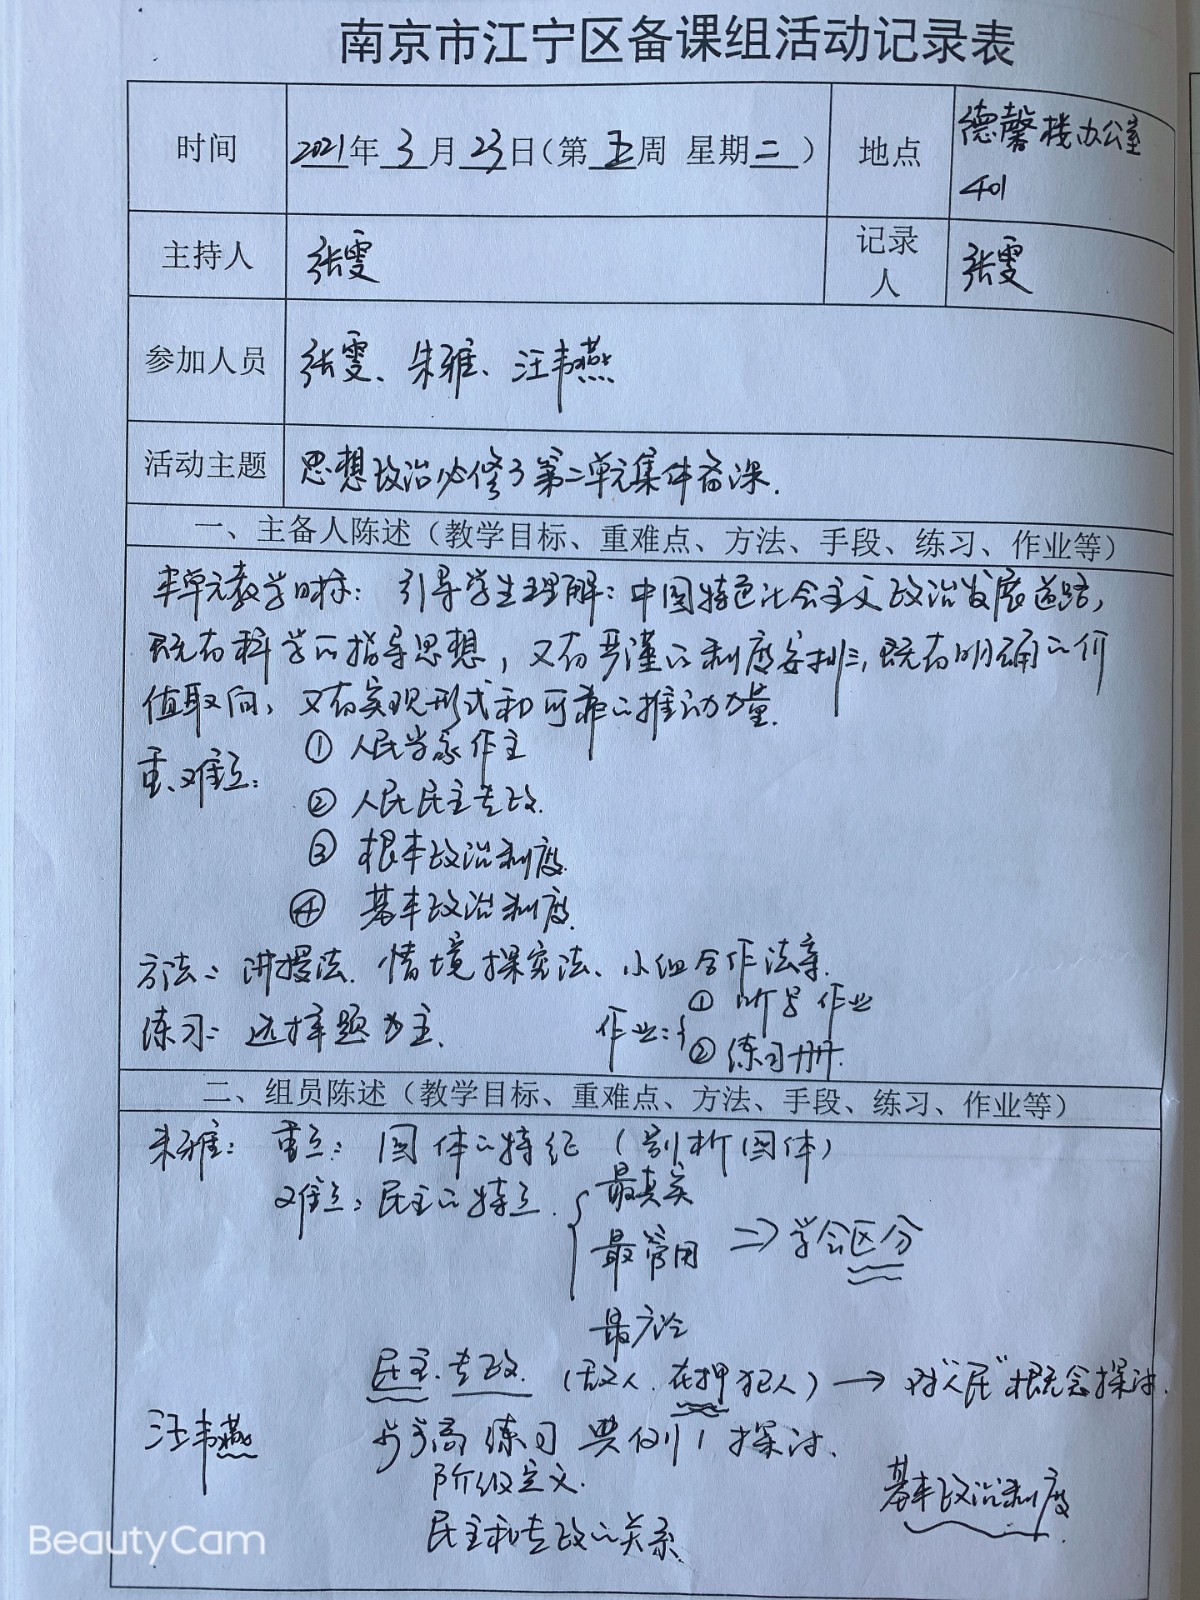 南京市江宁区备课组活动记录表
时间 2021年3月23日(第五周 星期二) 地点 德馨楼办公室
401
主持人 张雯 记录人 张雯
参加人员 张雯、朱雅、汪韦燕
活动主题 思想政治必修3第二单元集体备课.
一、主备人陈述（教学目标、重难点、方法、手段、练习、作业等）
本单元教学目标: 引导学生理解: 中国特色社会主义政治发展道路,
既有科学的指导思想, 又有严谨的制度安排, 既有明确的价
值取向, 又有实现形式和可靠的推动力量.
重、难点: ① 人民当家作主
② 人民民主专政.
③ 根本政治制度.
④ 基本政治制度.
方法: 讲授法. 情境探究法、小组合作法等.
练习: 选择题为主. 作业: ① 作业
② 练习册.
二、组员陈述（教学目标、重难点、方法、手段、练习、作业等）
朱雅: 重点: 国体的特征 (剖析国体)
难点: 民主的特点. 最真实
最管用 => 学会区分
最广泛
民主. 专政. (敌人. 在押犯人) → 对"人民"概念探讨.
汪韦燕 步步高练习 典例1 探讨.
阶级定义.
基本政治制度
民主和专政的关系.
BeautyCam